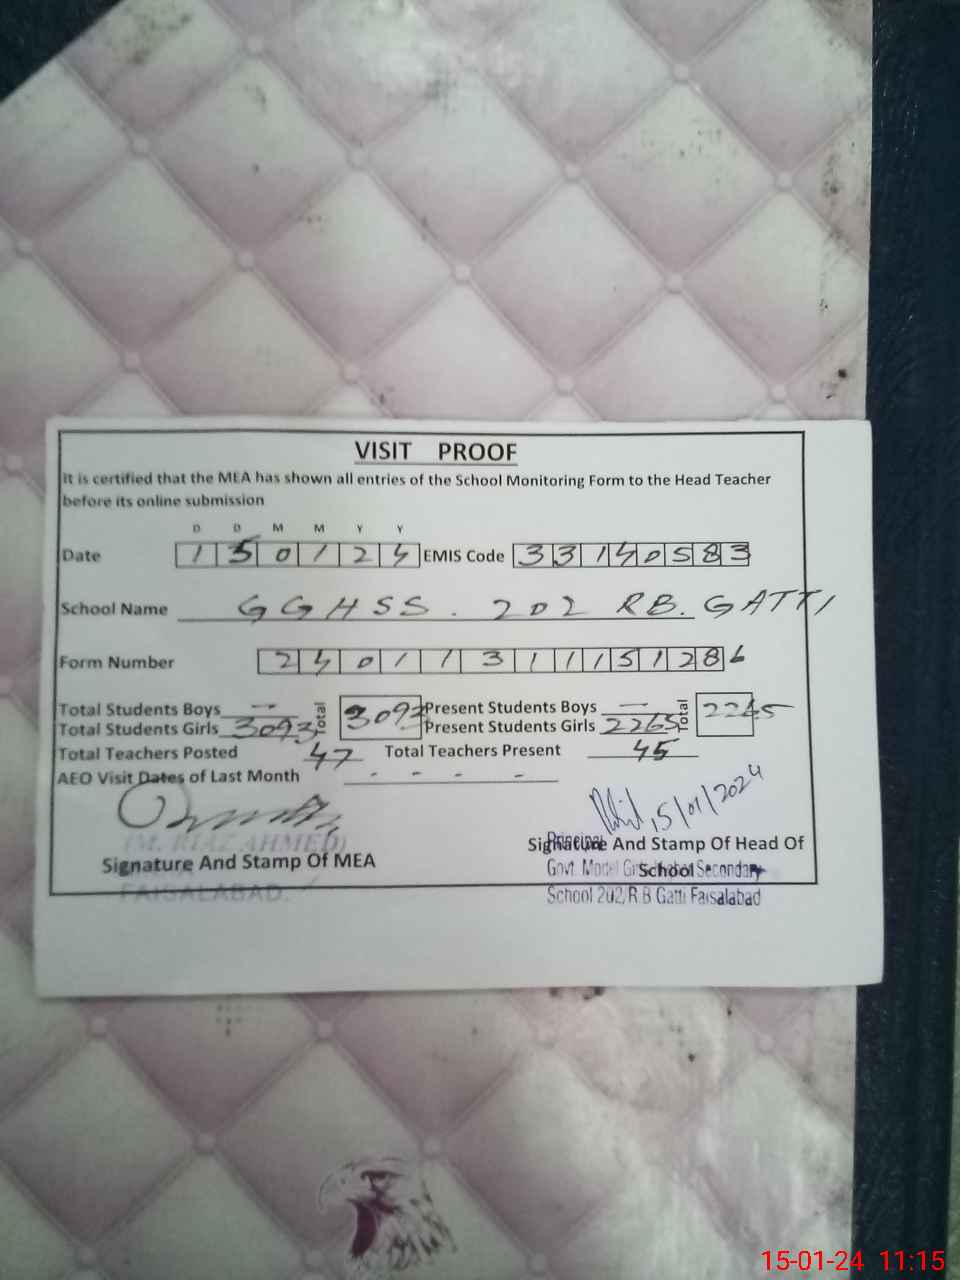 VISIT PROOF
It is certified that the MEA has shown all entries of the School Monitoring Form to the Head Teacher
before its online submission
D D M M Y Y
Date 1 5 0 1 2 4 EMIS Code 3 3 1 4 0 5 8 3
School Name GGHSS. 202 RB. GATTI
Form Number 2 4 0 1 1 3 1 1 1 5 1 2 8 6
Total Students Boys — Total 3093 Present Students Boys — Total 2265
Total Students Girls 3093 Present Students Girls 2265
Total Teachers Posted 47 Total Teachers Present 45
AEO Visit Dates of Last Month - - - -
15/01/2024
(M. RIAZ AHMED)
Signature And Stamp Of MEA
FAISALABAD.
Signature And Stamp Of Head Of
School
Principal
Govt. Model Girls Secondary
School 202/R.B Gatti Faisalabad
15-01-24 11:15